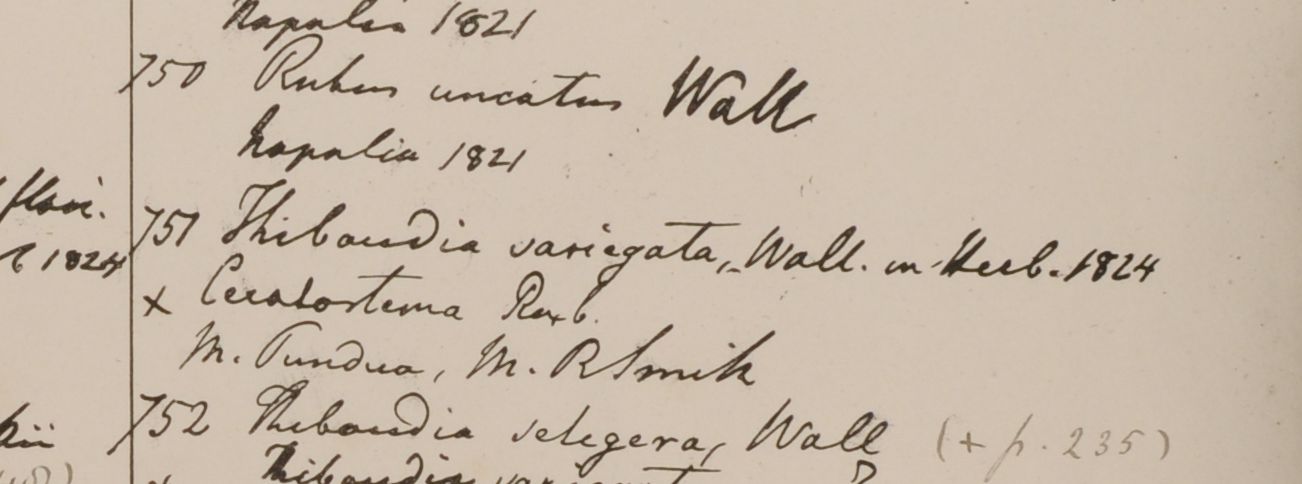 Napalia 1821
750 Rubus uncatus Wall
Napalia 1821
flavi.
751 Thibaudia variegata, Wall. in Herb. 1824
1824
x Ceratostema Roxb.
M. Pundua, M. R Smith
752 Thibaudia setegera, Wall (+ p. 235)
Thibaudia variegata